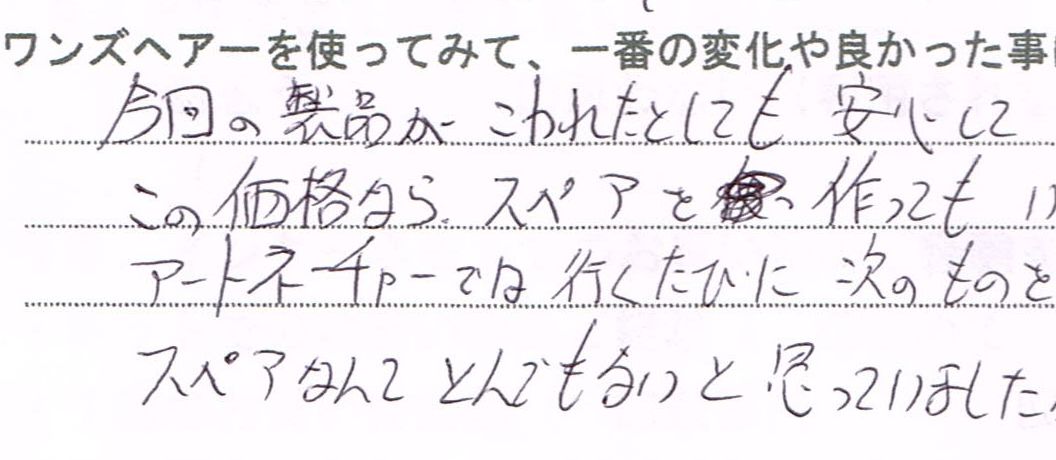 ワンズヘアーを使ってみて、一番の変化や良かった事
今回の製品がこわれたとしても安心して
この価格なら、スペアを作ってもい
アートネーチャーでは行くたびに次のものを
スペアなんてとんでもないと思っていました